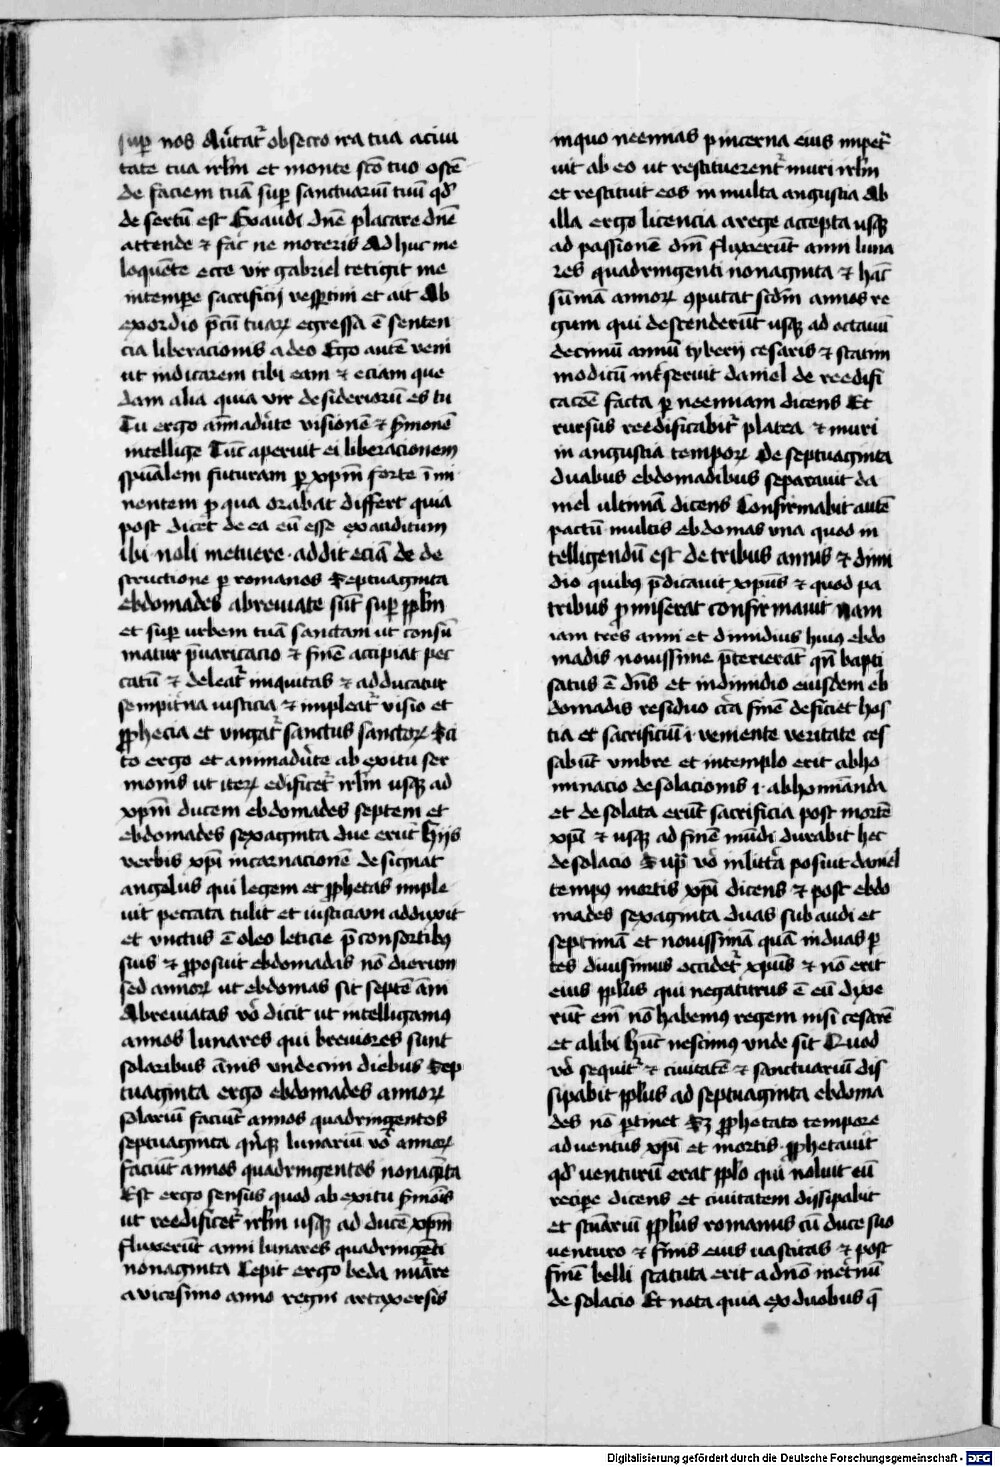 sup nos Au͛tat͛ obsecro ira tua a ciui
tate tua irl̅m et monte sc̅o tuo oste̅
de faciem tua̅ sup sanctuariu̅ tuu̅ qd͛
de sertu̅ est Exaudi dn̅e placare dn̅e
attende ⁊ fac͛ ne moreris Ad huc me
loque̅te ecce vir gabriel tetigit me
in tempe sacrificij vesptini et ait Ab
exordio p̅cu̅ tuaꝝ egressa e̅ senten
cia liberacionis a deo Ego aute̅ veni
ut indicarem tibi eam ⁊ eciam que
dam alia quia vir desideriorum es tu
Tu ergo ani̅adu͛te visione̅ ⁊ s͛mone̅
intellige Tu̅c aperuit ei liberacionem
spu̅alem futuram ꝑ xp̅m forte i̅mi
nentem ꝓ qua orabat differt quia
post dicet de ea eu̅ esse exauditum
ibi noli metuere · addit ecia̅ de de
structione ꝑ romanos Septuaginta
ebdomades abreuiate su̅t sup ppl̅m
et sup urbem tua̅ sanctam ut consu̅
matur p̅uaricacio ⁊ fine̅ accipiat pec
catu̅ ⁊ deleat͛ iniquitas ⁊ adducatur
sempit͛na iusticia ⁊ impleat͛ visio et
ꝓphecia et ungat͛ sanctus sanctoꝝ Sci
to ergo et animadu͛te ab exitu ser
monis ut iteꝝ edificet͛ irl̅m usqꝫ ad
xp̅m ducem ebdomades septem et
ebdomades sexaginta due eru̅t Hijs
verbis xp̅i incarnacione̅ designat
angelus qui legem et ꝓphetas imple
uit peccata tulit et iusticiam adduxit
et vnctus e̅ oleo leticie p̅ consortibꝰ
suis ⁊ ꝓposuit ebdomadas no̅ dierum
sed annoꝝ ut ebdomas sit septe̅ a̅ni
Abreuiatas vo͛ dicit ut intelligamꝰ
annos lunares qui breuiores sunt
solaribus a̅nis vndecim diebus Sep
tuaginta ergo ebdomades annoꝝ
solariu̅ faciu̅t annos quadringentos
septuaginta qn͛qꝫ lunariu̅ vo͛ annoꝝ
faciu̅t annos quadringentos nonagi̅ta
Est ergo sensus quod ab exitu s͛mo̅is
ut reedificet͛ irl̅m usqꝫ ad duce̅ xp̅m
fluxeru̅t anni lunares quadringe̅ti
nonaginta Cepit ergo beda nu͛are
a vicesimo anno regni artaxersis
in quo neemias pincerna eius impet͛
uit ab eo ut restituerent͛ muri irl̅m
et restituit eos in multa angustia Ab
illa ergo licencia a rege accepta usqꝫ
ad passione̅ dn̅i fluxeru̅t anni luna
res quadringenti nonaginta ⁊ hac̅
su̅ma̅ annoꝝ ꝯputat scd̅m annos re
gum qui descenderu̅t usqꝫ ad octauu̅
decimu̅ annu̅ tyberij cesaris ⁊ statim
modicu̅ int͛seruit daniel de reedifi
cac̅oe̅ facta ꝑ neemiam dicens Et
rursus reedificabit͛ platea ⁊ muri
in angustia tempoꝝ De septuaginta
duabus ebdomadibus separauit da
niel ultima̅ dicens Confirmabit aute̅
pactu̅ multis ebdomas vna quod in
telligendu̅ est de tribus annis ⁊ dimi
dio quibꝰ p̅dicauit xp̅us ⁊ quod pa
tribus ꝓmiserat confirmauit Nam
iam tres anni et dimidius huiꝰ ebdo
madis nouissime p̅terierat̅ qn̅ bapti
satus e̅ dn̅s et in dimidio eiusdem eb
domadis residuo cir͛ca fine̅ deficiet hos
tia et sacrificiu̅ .i. veniente veritate ces
sabu̅t vmbre et in templo erit abho
minacio desolacionis .i. abhomi̅anda
et desolata eru̅t sacrificia post morte̅
xp̅i ⁊ usqꝫ ad fine̅ mu̅di durabit hec
desolacio Sup̅ vo͛ in litt͛a posuit daniel
tempꝰ mortis xp̅i dicens ⁊ post ebdo
mades sexaginta duas sub audi et
septima̅ et nouissima̅ qua̅ in duas ꝑ
tes diuisimus occidet͛ xp̅us ⁊ no̅ erit
eius ppl̅us qui negaturus e̅ eu̅ dixe
ru̅t em̅ no̅ habemꝰ regem nisi cesare̅
et alibi hu̅c nescimꝰ vnde sit Quod
vo͛ sequit͛ ⁊ ciuitate̅ ⁊ sanctuariu̅ dis
sipabit ppl̅us ad septuaginta ebdoma
des no̅ ꝑtinet Sꝫ ꝓphetato tempore
aduentus xp̅i et mortis ꝓphetauit
qd͛ venturu̅ erat ppl̅o qui noluit eu̅
recipe dicens et ciuitatem dissipabit
et sc̅uariu̅ ppl̅us romanus cu̅ duce suo
venturo ⁊ finis eius vastitas ⁊ post
fine̅ belli statuta erit a dn̅o inet͛nu̅
desolacio Et nota quia ex duobus q̅
Digitalisierung gefördert durch die Deutsche Forschungsgemeinschaft - DFG